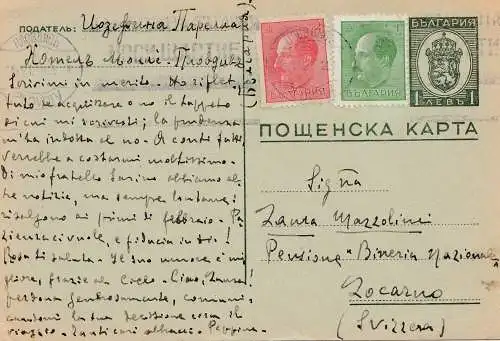 ПОДАТЕЛЬ: Иозефина Парелла
Хотелъ Молле - Пловдивъ
(България)
Scrivimi in merito. Ho riflet-
tuto se acquistare o no il tappeto
di cui mi scrivesti; la prudenza
m'ha indotta al no. A conti fatti,
verrebbe a costarmi moltissimo.
Di mio fratello abbiamo al-
tre notizie, ma sempre lontane:
risalgono ai primi di febbraio. Pa-
zienza ci vuole, e fiducia in Dio!
Rosa ti saluta. Il suo umore è mi-
gliore, grazie al Cielo. Ciao, Zaura!
perdona generosamente, comuni-
candomi la tua decisione circa il
viaggio. Tanti cari abbracci. Peppina.
БЪЛГАРИЯ
БЪЛГАРИЯ
БЪЛГАРИЯ
1 ЛЕВЪ 1
ПОЩЕНСКА КАРТА
Sig.na
Zaura Mazzolini
Pensione "Bineria Nazionale
Locarno
(Svizzera)